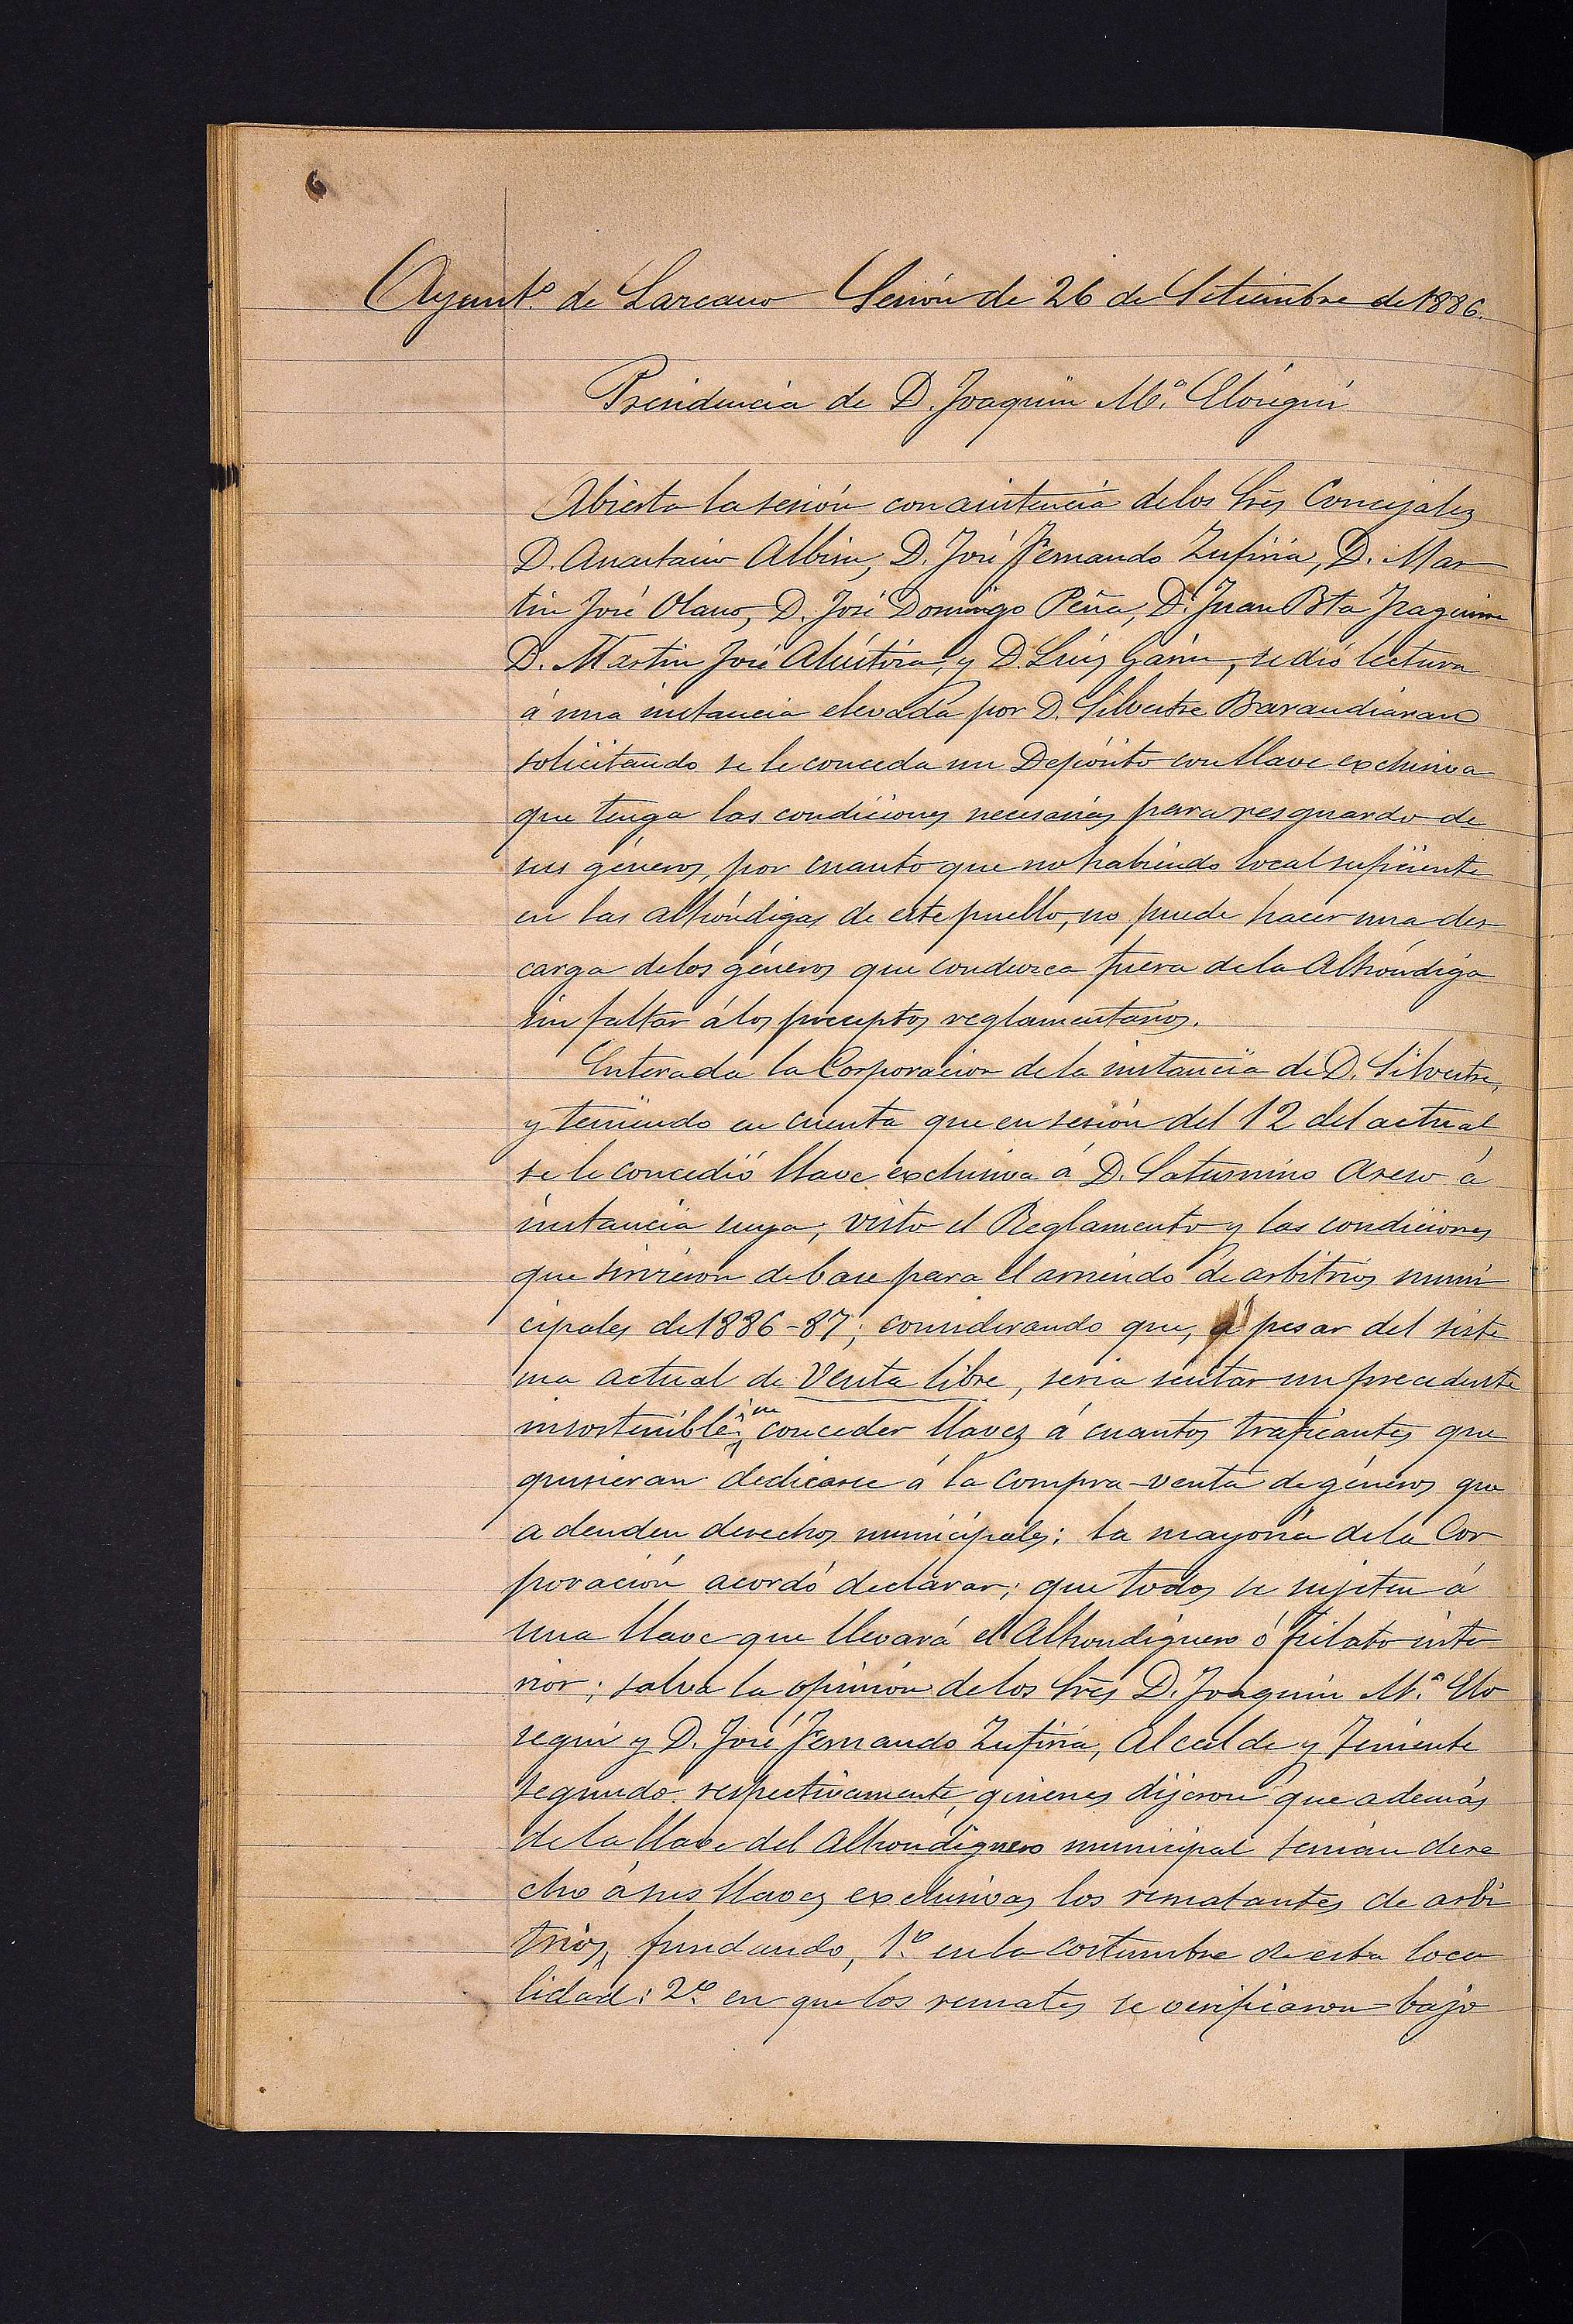 6
Ayunt.º de Lazcano Sesión de 26 de Setiembre de 1886.
Presidencia de D. Joaquin M.ª Elósegui
Abierta la sesión con asistencia de los Sres Concejales
D. Anastasio Albisu, D. José Fernando Zufiria, D. Mar
tin José Olano, D. José Domingo Peña, D. Juan Bta
D. Martin José y D. Luis Garin, se dió lectura
á una instancia elevada por D. Silvestre Barandiaran
solicitando se le conceda un Depósito con llave exclusiva
que tenga las condiciones necesarias para resguardo de
sus géneros, por cuanto que no habiendo local suficiente
en las alhóndigas de este pueblo, no puede hacer una des
carga de los géneros que conduzca fuera de la Alhóndiga
sin faltar á los preceptos reglamentarios.
Enterada la Corporacion de la instancia de D. Silvestre,
y teniendo en cuenta que en sesión del 12 del actual
se le concedió llave exclusiva á D. Saturnino Aseso á
instancia suya; visto el Reglamento y las condiciones
que sirvieron de base para el arriendo de arbitrios muni
cipales de 1886-87; considerando que, á pesar del siste
ma actual de Venta libre, seria sentar un precedente
insostenible conceder llaves á cuantos traficantes que
quisieran dedicarse á la compra-venta de géneros que
adeuden derechos municipales: la mayoria de la Cor
poración acordó declarar; que todos se sujeten á
una llave que llevará el Alhondiguero ó fielato inte
rior; salva la opinión de los Sres D. Joaquin M.ª Elo
segui y D. José Fernando Zufiria, Alcalde y Teniente
segundo respectivamente, quienes dijeron que además
de la llave del Alhondiguero municipal tenian dere
cho á sus llaves exclusivas los rematantes de arbi
trios, fundando, 1.º en la costumbre de esta loca
lidad: 2.º en que los remates se verificaron bajo